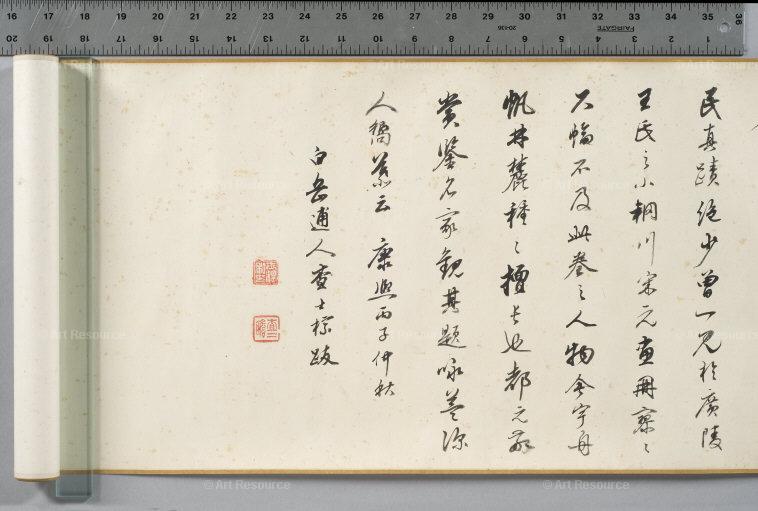 16 17 18 19 20 21 22 23 24 25 26 27 28 29 30 31 32 33 34 35 36
20 19 18 17 16 15 14 13 12 11 10 9 8 7 6 5 4 3 2 1
FAIRGATE
民真蹟絕少曾一見於廣陵
王氏之小輞川宋元畫冊寥〻
幅不及此卷之人物舍宇舟
帆林麓種〻擅長也都元敬
賞鑒名家觀其題咏益深
人慕云 康熙丙子仲秋
白岳逋人查士標跋
© Art Resource